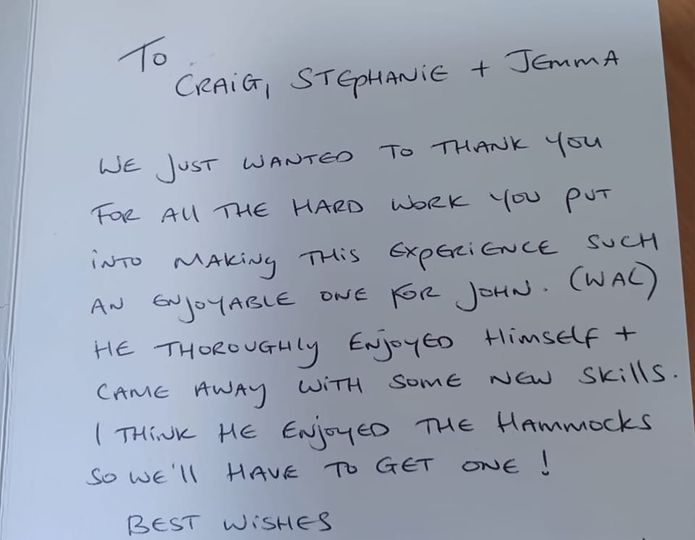 To
CRAiG, STEPHANiE + JEmmA
WE JUST WANTED TO THANK YOU
FOR All THE HARD WORK YOU PUT
iNTO MAKiNg THiS EXPERiENCE SUCH
AN ENjOYABLE ONE FOR JOHN. (WAL)
HE THOROUGHly ENjOYED HimSElf +
CAME AWAy WiTH SOME NEW SkillS.
I THiNK HE ENjOYED THE HAmmOCKS
SO WE'll HAVE TO GET ONE!
BEST WiSHES